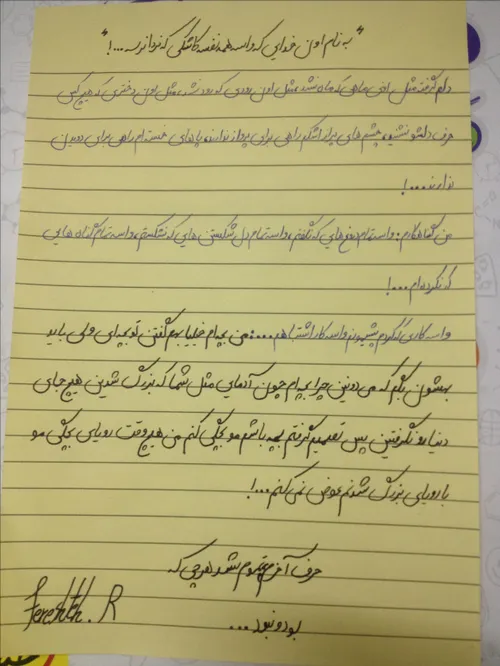 "به نام اون خدایی که واسه همه نفسه کاشکی که برا نرسه...!"
دلم گرفته مثل اون ماهی که ماه نشد، مثل اون رودی که رود نشد، مثل اون دختری که هیچ کس
حرف دلشو نشنید، چشم های پر از اشکم راهی برای پرواز ندارند، پاهای خسته ام راهی برای دویدن
ندارند...!
من گناهکارم: واسه تمام دروغ هایی که نگفتم، واسه تمام دل شکستن هایی که نشکستم، واسه تمام گناه هایی
که نکرده ام...!
واسه کاری که کردم پشیمونم واسه کارا اشتباهم...: من بچه ام خیلیا بهم گفتن تو بچه ای ولی باید
بهشون بگم که می دونین چرا بچه ام چون آدمایی مثل شما که بزرگ شدین هیچ جای
دنیا رو نگرفتین پس تصمیم گرفتم بچه باشم مو بچگی کنم من هیچ وقت رویای بچگی مو
با رویای بزرگ شدنم عوض نمی کنم...!
حرف آخرم تموم نشد هرچی که
بود و نبود...
Fereshteh.R